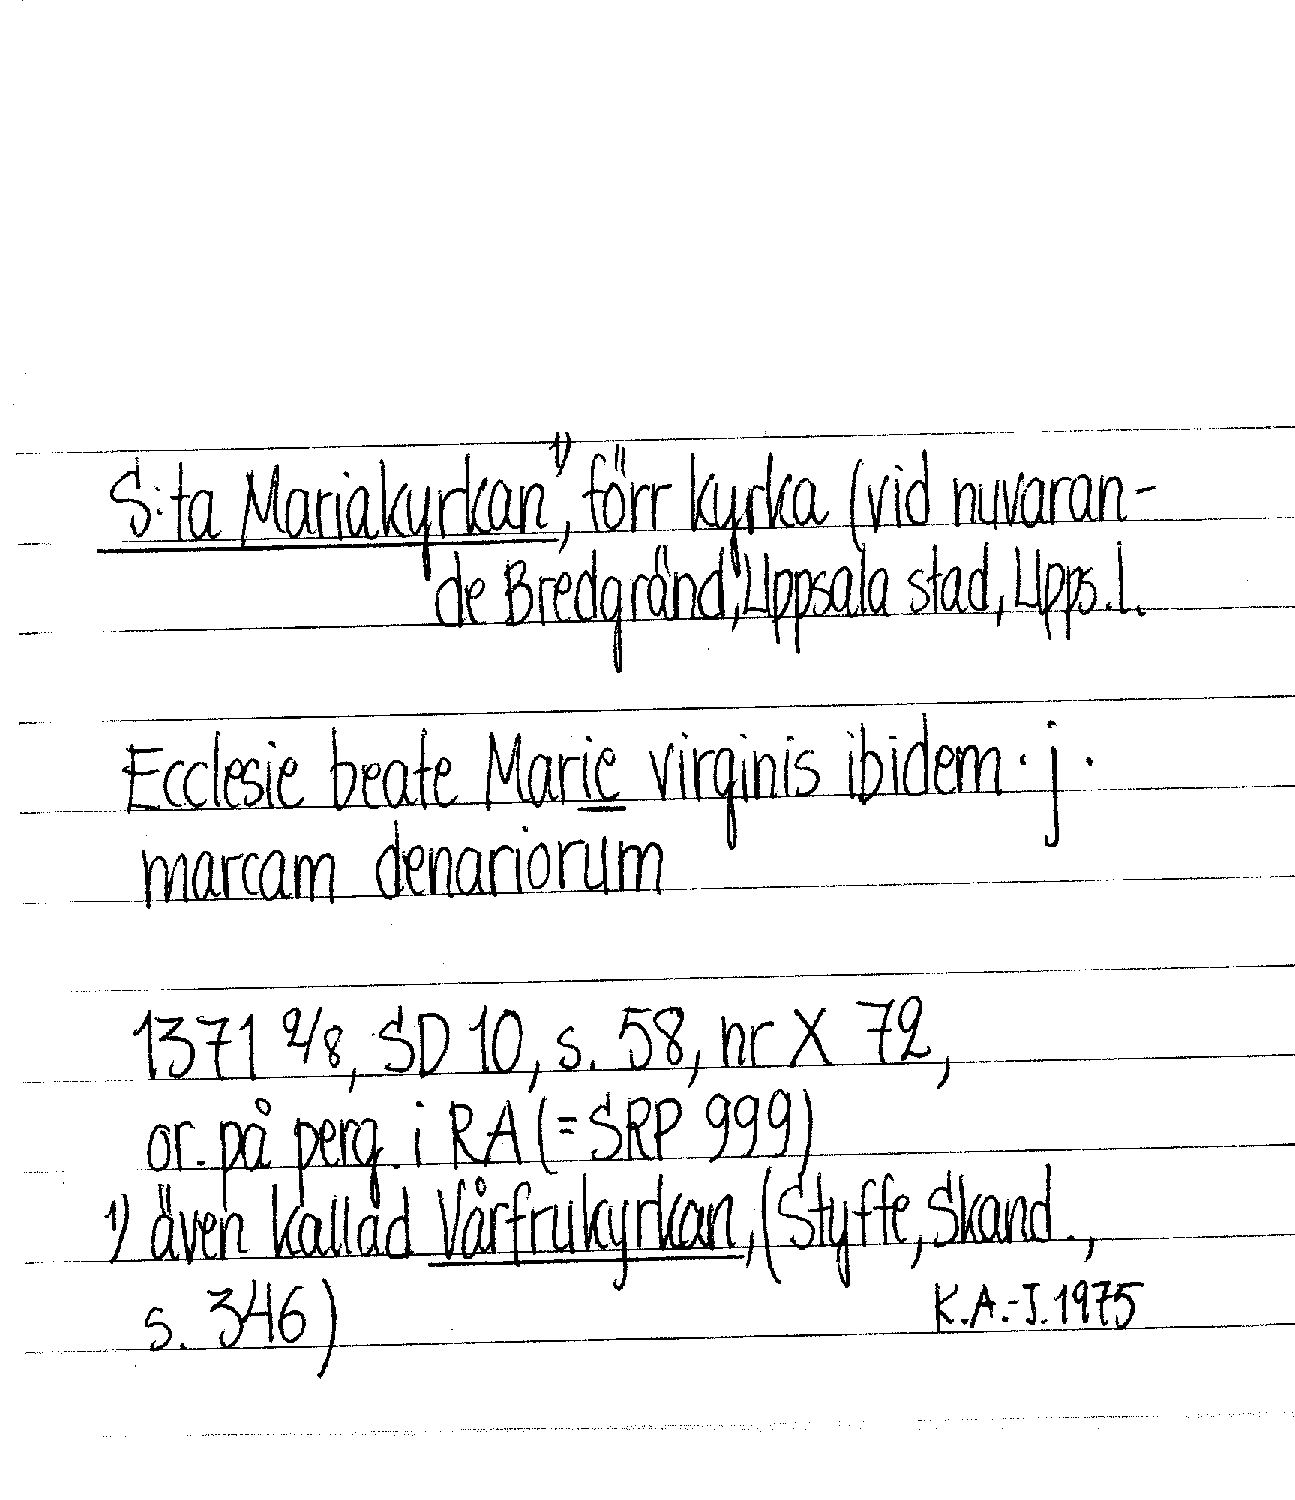 S:ta Mariakyrkan¹⁾, förr kyrka (vid nuvaran-
de Bredgränd), Uppsala stad, Upps. l.
Ecclesie beate Marie virginis ibidem · j ·
marcam denariorum
1371 2/8, SD 10, s. 58, nr X 72,
or. på perg. i RA (= SRP 999)
¹⁾ även kallad Vårfrukyrkan, (Styffe, Skand.,
s. 346)
K.A.-J. 1975